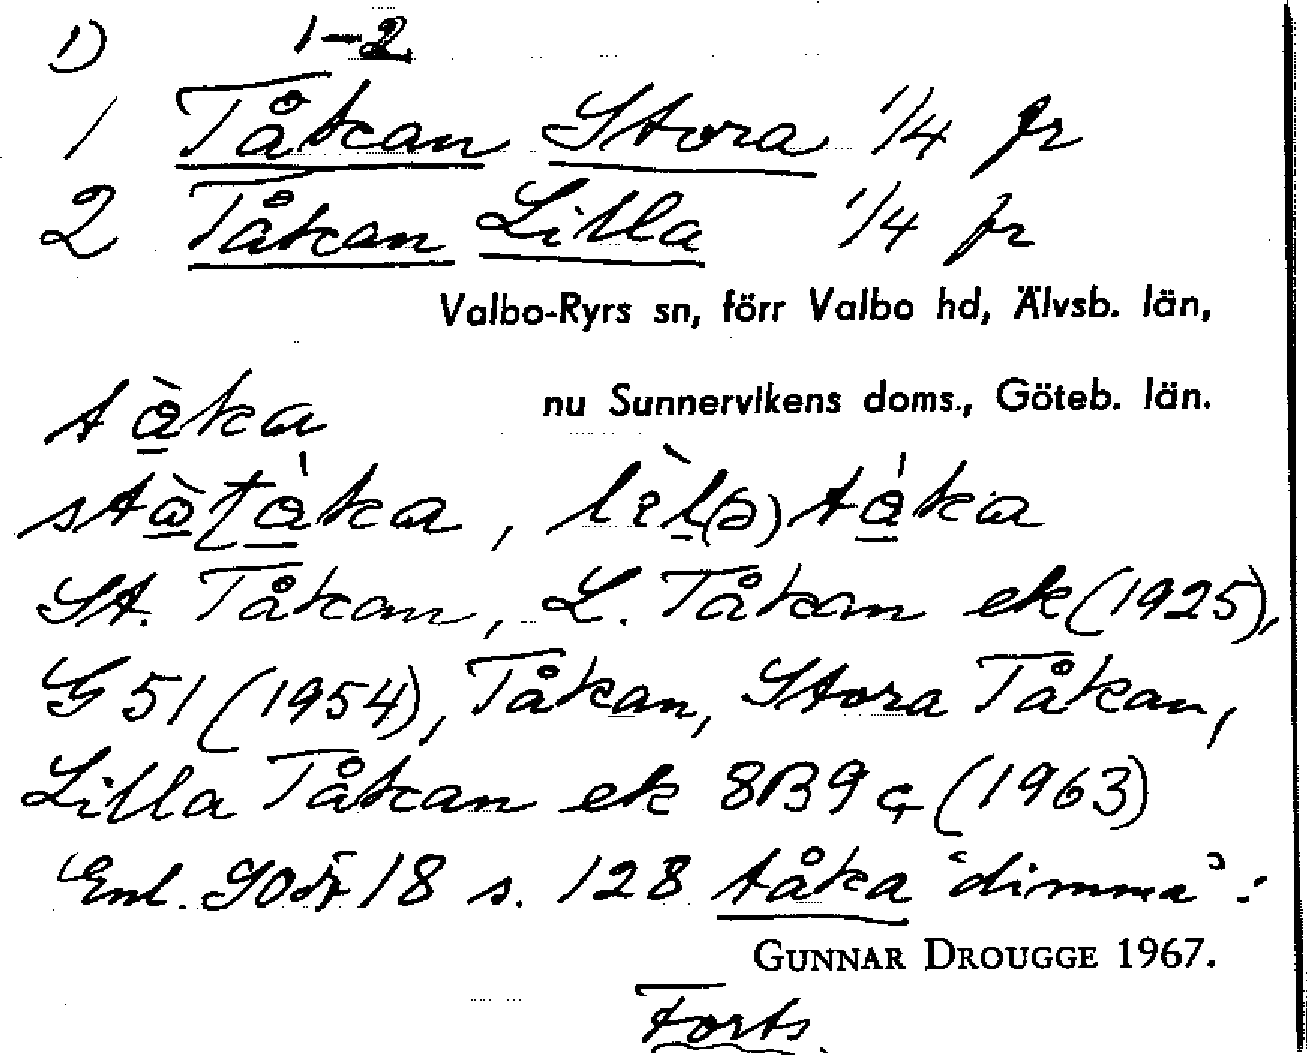 1) 1-2
1 Tåkan Stora 1/4 fr
2 Tåkan Lilla 1/4 fr
Valbo-Ryrs sn, förr Valbo hd, Älvsb. län,
nu Sunnervikens doms., Göteb. län.
St. Tåkan, L. Tåkan ek (1925),
G 51 (1954), Tåkan, Stora Tåkan,
Lilla Tåkan ek 8B9 (1963)
Enl. 18 s. 128 tåka "dimma":
GUNNAR DROUGGE 1967.
Forts.